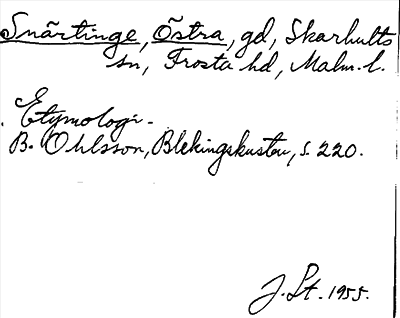 Snärtinge, Östra, gd, Skarhults
sn, Frosta hd, Malm. l.
Etymologi.
B. Ohlsson, Blekingskusten, s. 220.
J. St. 1955.